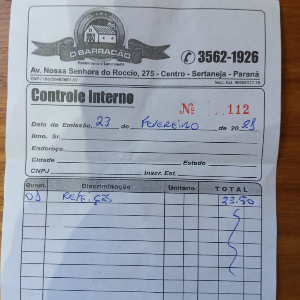 O BARRACÃO
3562-1926
Av. Nossa Senhora do Roccio, 275 - Centro - Sertaneja - Paraná
Controle Interno
Nº 112
Data da Emissão, 23 de FEVEREIRO de 20
Ilmo. Sr.
Endereço
Cidade Estado
CNPJ Inscr. Est.
Quant. Discriminação Unitário TOTAL
01 REFEIÇÃO 23,50